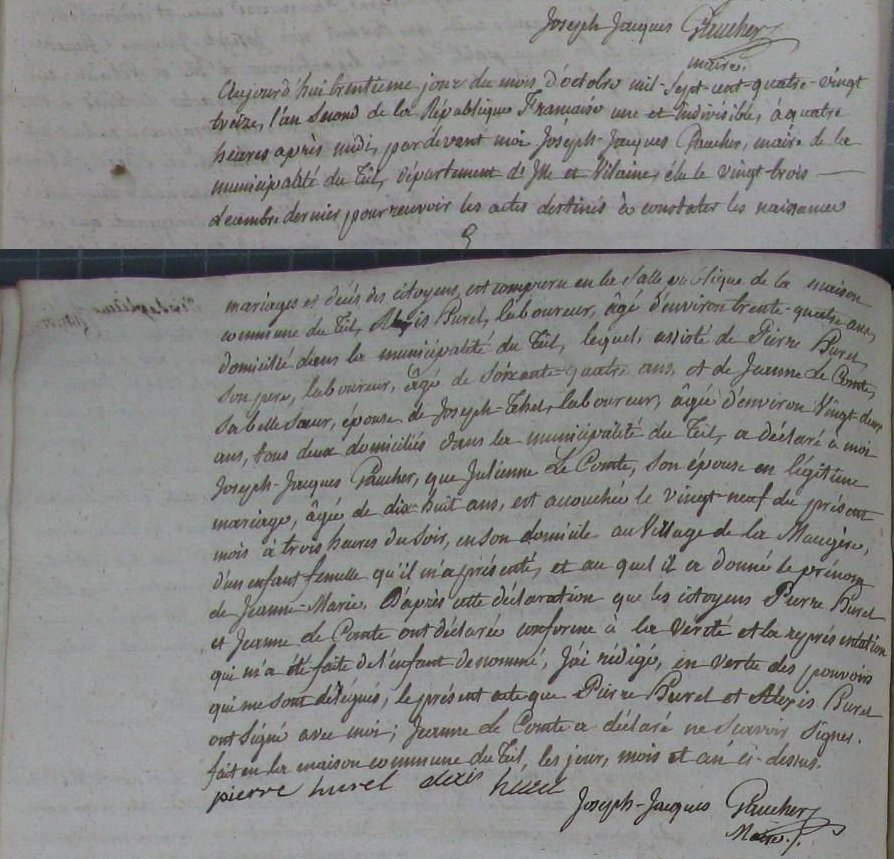 Joseph Jacques Gaucher
maire.
Aujourd'hui trentieme jour du mois d'octobre mil-sept-cent-quatre-vingt
treize, l'an second de la République Française une et indivisible, à quatre
heures après midi, pardevant moi Joseph-Jacques Gaucher, maire de la
municipalité du Teil, département d'Ille et Vilaine, élu le vingt trois
decembre dernier pour recevoir les actes destinés à constater les naissances
mariages et décès des citoyens, est comparu en la salle publique de la maison
commune du Teil, Alexis Hurel, laboureur, âgé d'environ trente-quatre ans,
domicilié dans la municipalité du Teil, lequel, assisté de Pierre Hurel,
son pere, laboureur, âgé de soixante-quatre ans, et de Jeanne Le Comte,
sa belle sœur, épouse de Joseph-Tehel, laboureur, âgée d'environ Vingt deux
ans, tous deux domiciliés dans la municipalité du Teil, a déclaré à moi
Joseph-Jacques Gaucher, que Julienne Le Comte, son épouse en légitime
mariage, âgée de dix-huit ans, est accouchée le vingt-neuf du présent
mois à trois heures du soir, en son domicile au Village de la Maugère,
d'un enfant femelle qu'il m'a présenté, et au quel il a donné le prénom
de Jeanne-Marie. D'après cette déclaration que les citoyens Pierre Hurel
et Jeanne Le Comte ont déclarée conforme à la Vérité et la représentation
qui m'a été faite de l'enfant denommé, J'ai rédigé, en vertu des pouvoirs
qui me sont délégués, le présent acte que Pierre Hurel et Alexis Hurel
ont signé avec moi; Jeanne Le Comte a déclaré ne Scavoir Signer.
fait en la maison commune du Teil, les jour, mois et an ci-dessus.
pierre hurel alexis hurel
Joseph-Jacques Gaucher
Maire.